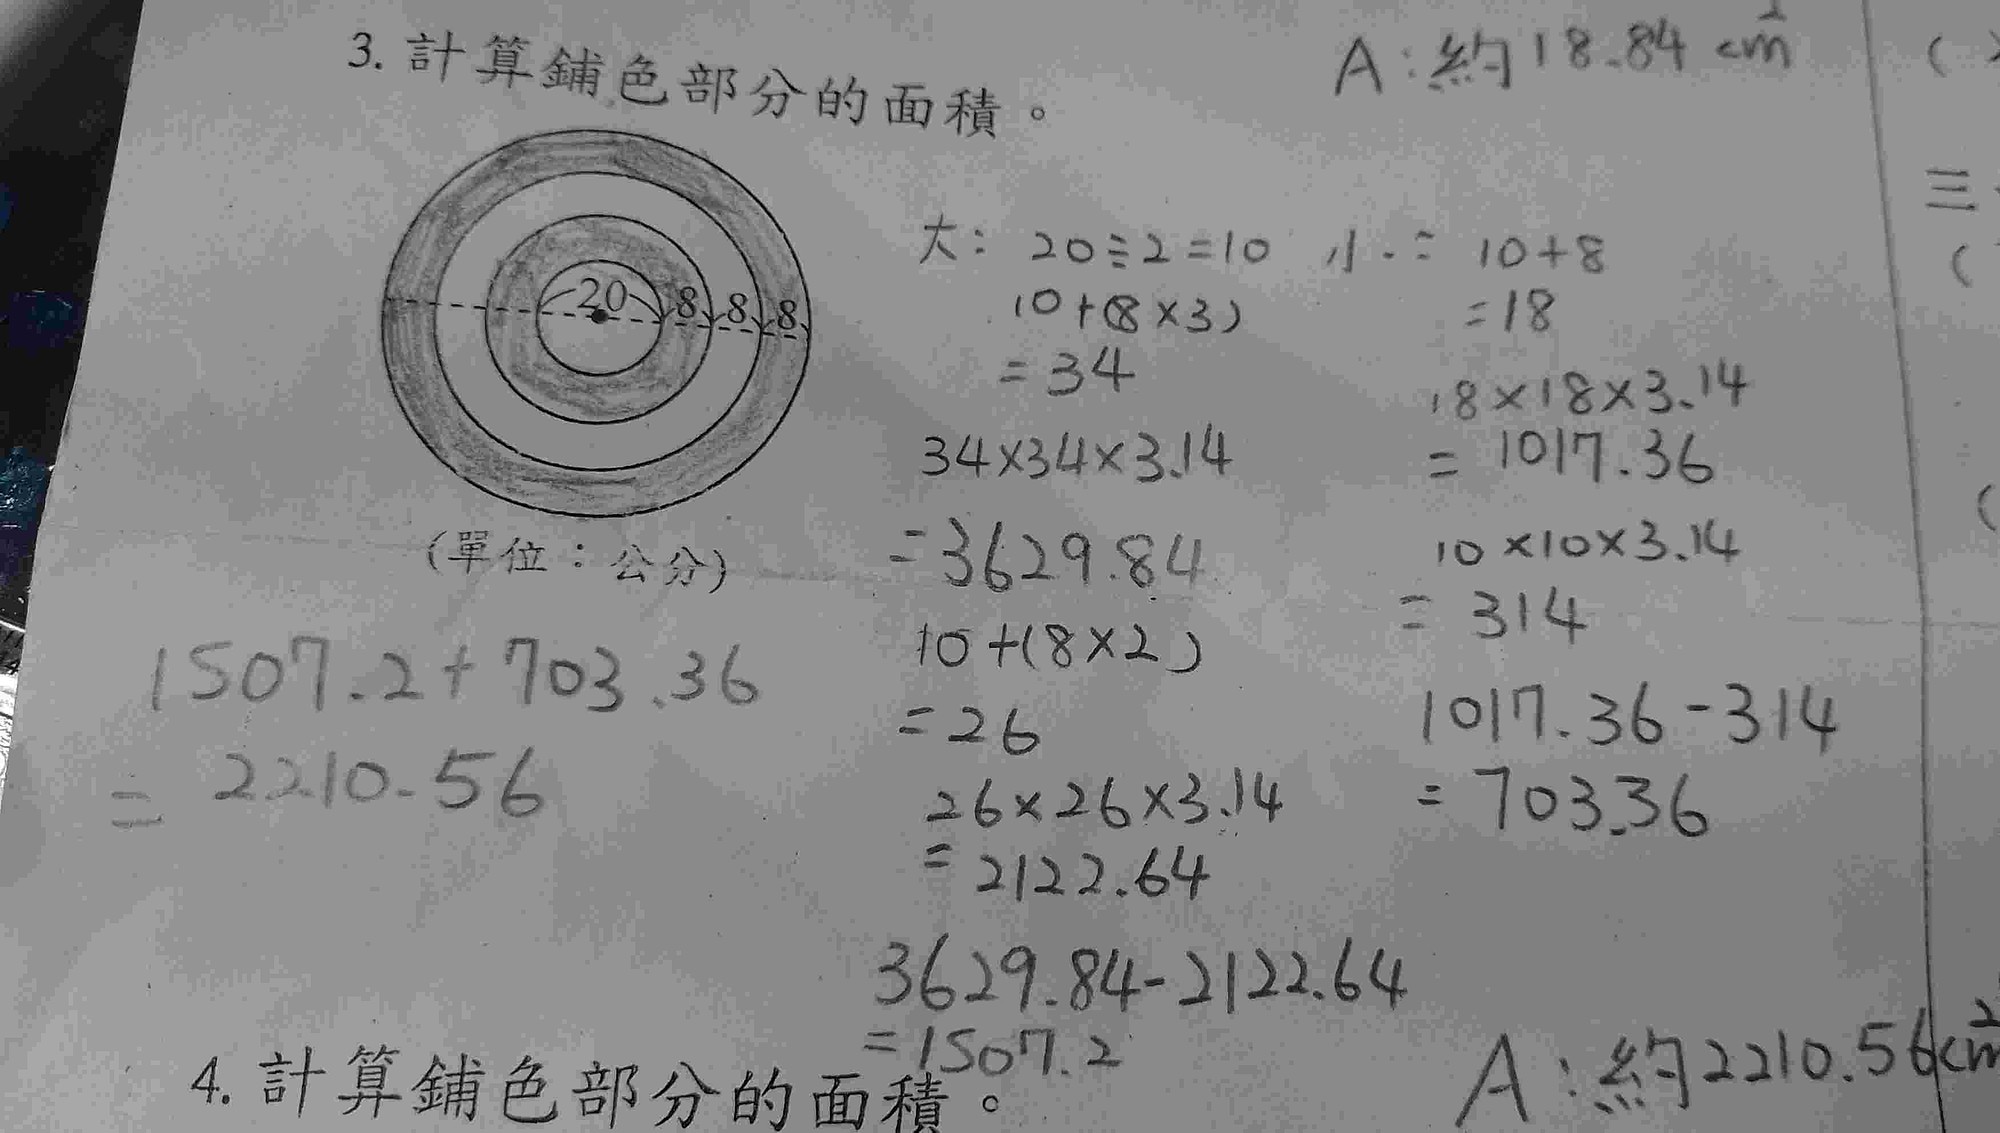 A：約18.84 cm²
3. 計算鋪色部分的面積。
20 8 8 8
(單位：公分)
大： 20÷2=10
10+(8×3)
=34
34×34×3.14
=3629.84
10+(8×2)
=26
26×26×3.14
=2122.64
3629.84-2122.64
=1507.2
小： 10+8
=18
18×18×3.14
= 1017.36
10×10×3.14
= 314
1017.36-314
= 703.36
1507.2+703.36
= 2210.56
A：約2210.56cm²
4. 計算鋪色部分的面積。
三